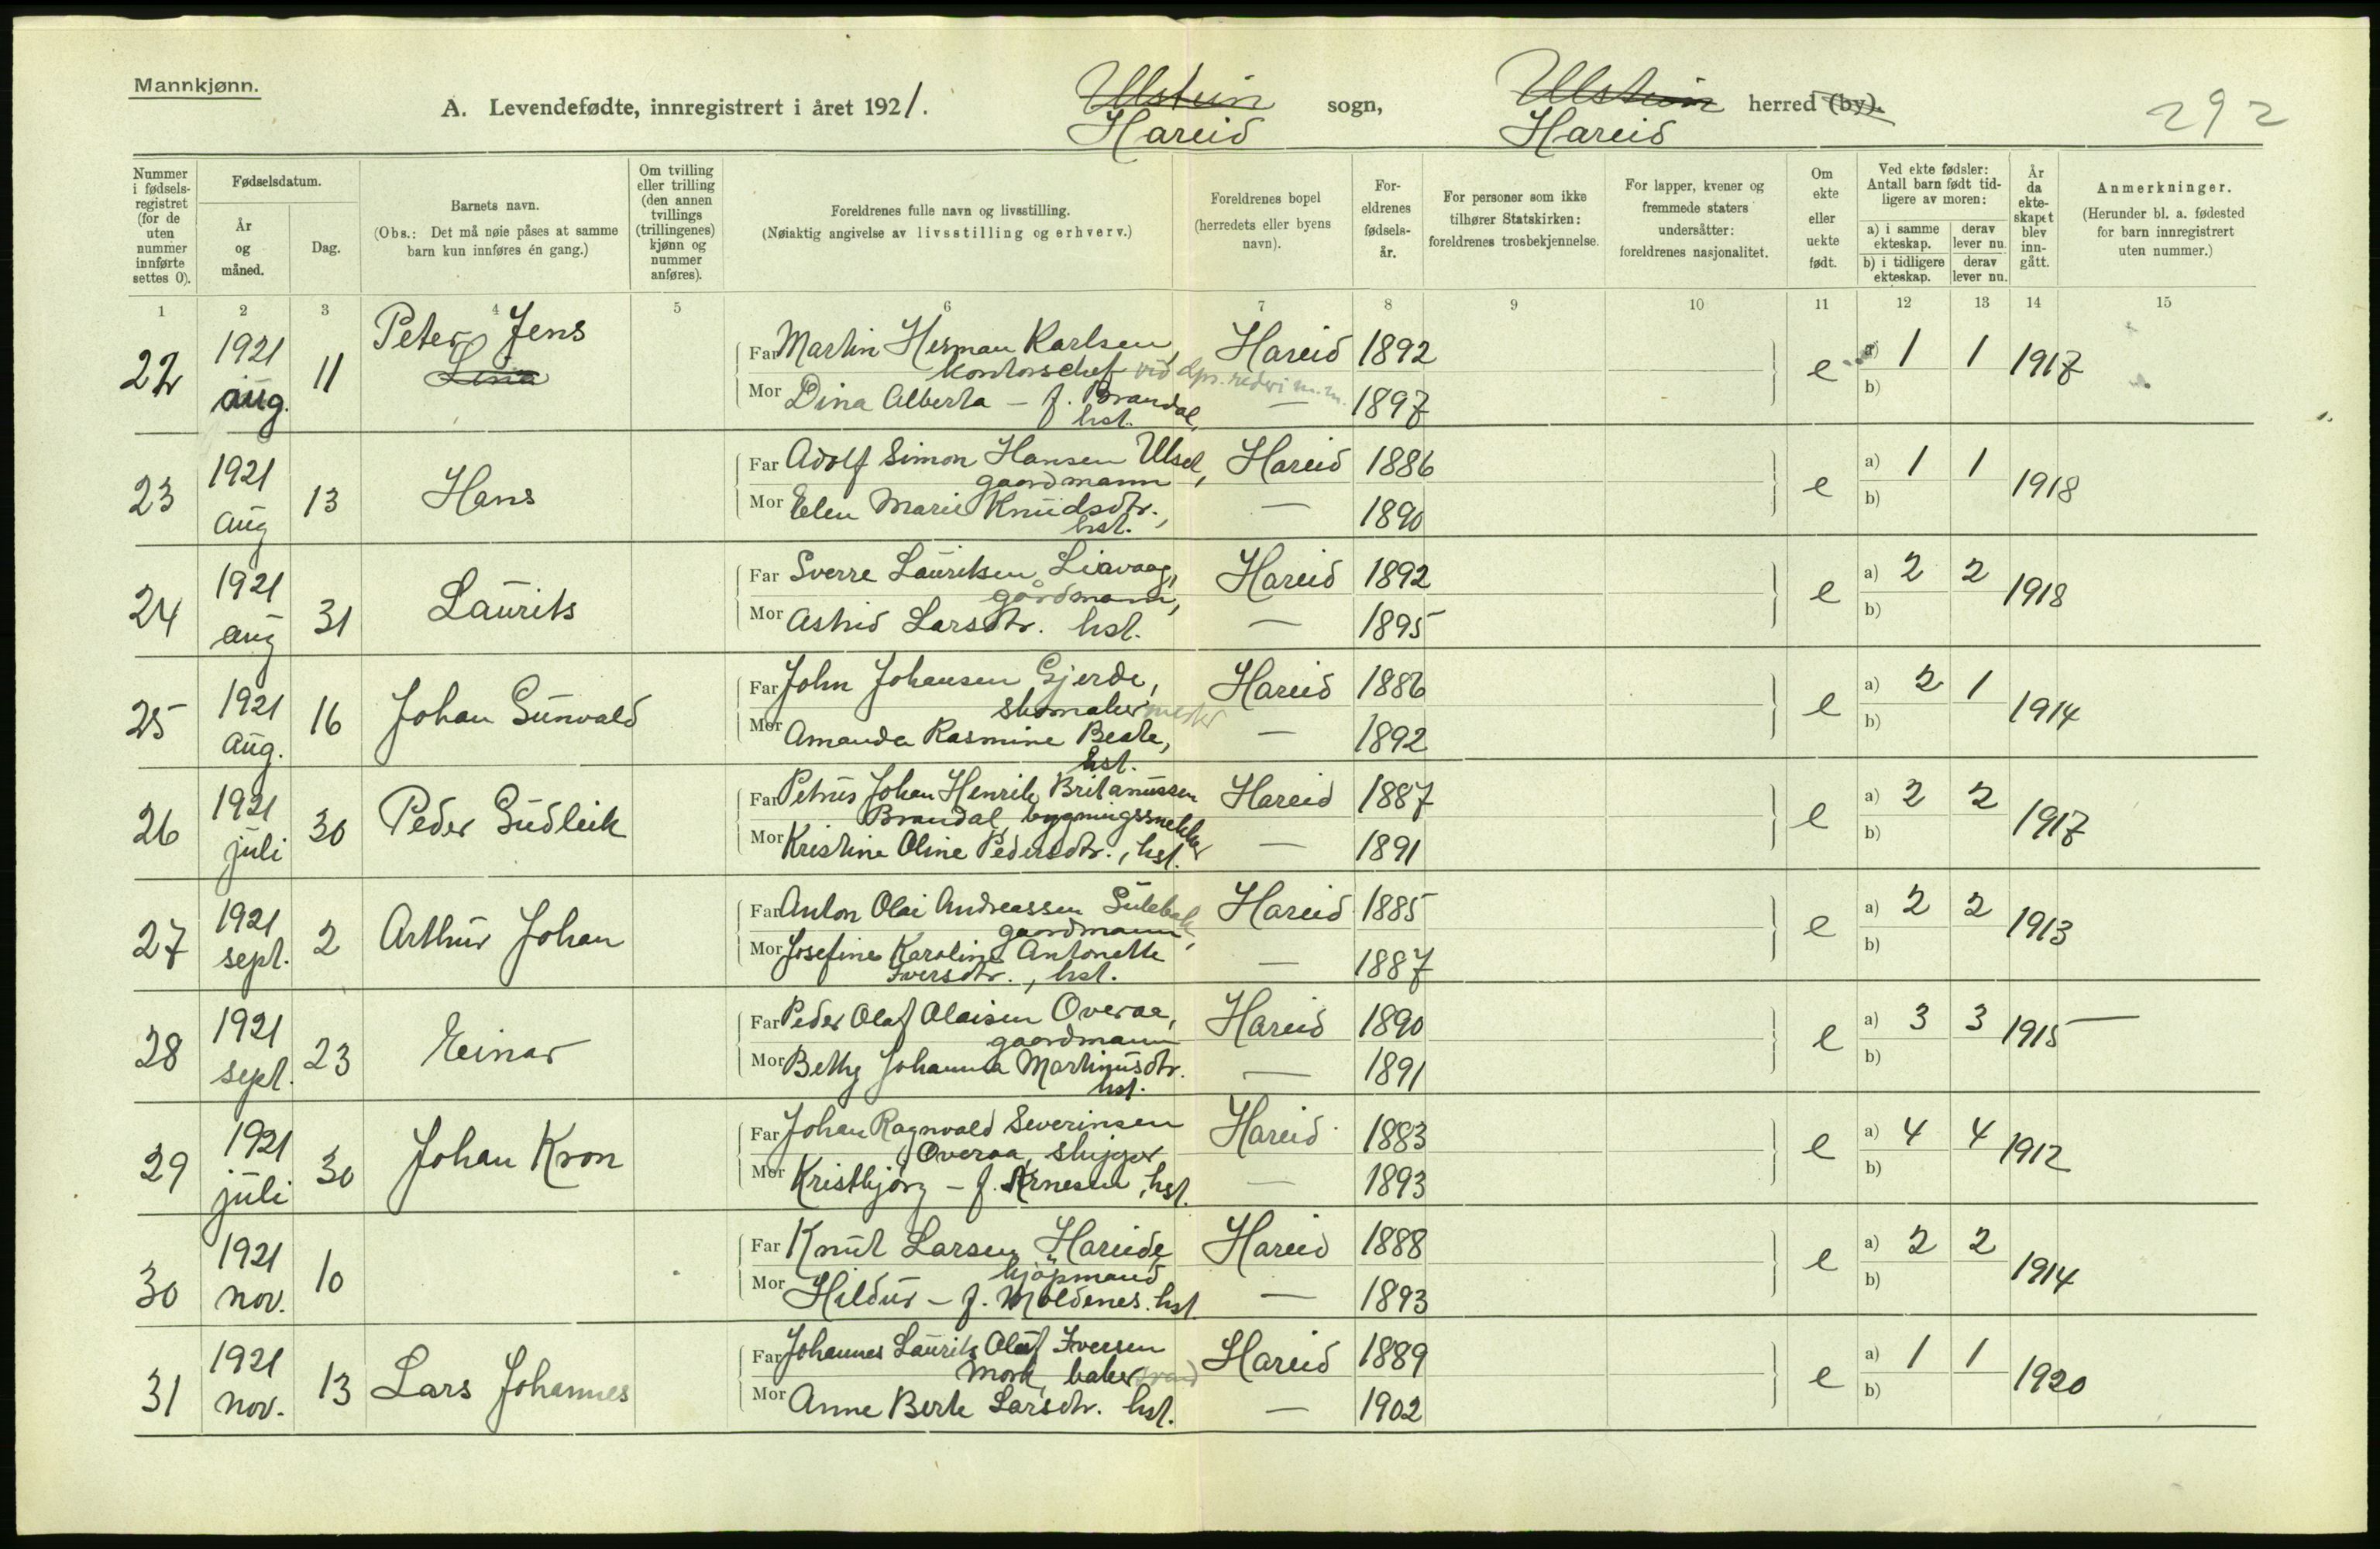 Mannkjønn.
A. Levendefødte, innregistrert i året 1921. Ulstein sogn, Ulstein herred (by).
Hareid Hareid
292
Nummer i fødsels-registret (for de uten nummer innførte settes 0).
Fødselsdatum.
År og måned.
Dag.
Barnets navn.
(Obs.: Det må nøie påses at samme barn kun innføres én gang.)
Om tvilling eller trilling (den annen tvillings (trillingenes) kjønn og nummer anføres).
Foreldrenes fulle navn og livsstilling.
(Nøiaktig angivelse av livsstilling og erhverv.)
Foreldrenes bopel (herredets eller byens navn).
For-eldrenes fødsels-år.
For personer som ikke tilhører Statskirken: foreldrenes trosbekjennelse.
For lapper, kvener og fremmede staters undersåtter: foreldrenes nasjonalitet.
Om ekte eller uekte født.
Ved ekte fødsler: Antall barn født tid-ligere av moren:
a) i samme ekteskap.
derav lever nu.
b) i tidligere ekteskap.
derav lever nu.
År da ekte-skapet blev inn-gått.
Anmerkninger.
(Herunder bl. a. fødested for barn innregistrert uten nummer.)
1 2 3 4 5 6 7 8 9 10 11 12 13 14 15
22 1921 aug. 11 Peter Jens
Far Martin Herman Karlsen, Hareid 1892 e a) 1 1 1917
kontorschef
Mor Dina Alberta - f. Brandal, — 1897 b)
hst.
23 1921 aug 13 Hans
Far Adolf Simon Hansen Ulset, Hareid 1886 e a) 1 1 1918
gaardmann
Mor Elen Marie Knudsdtr., — 1890 b)
hst.
24 1921 aug 31 Laurits
Far Sverre Lauritsen Liavaag, Hareid 1892 e a) 2 2 1918
gårdmann,
Mor Astrid Larsdtr. hst. — 1895 b)
25 1921 aug. 16 Johan Gunvald
Far John Johansen Gjerde, Hareid 1886 e a) 2 1 1914
skomakermester
Mor Amanda Rasmine Beate, — 1892 b)
hst.
26 1921 juli 30 Peder Gudleik
Far Petrus Johan Henrik Britanussen Hareid 1887 e a) 2 2 1917
Brandal, bygningssnekker
Mor Kristine Oline Pedersdtr., hst. — 1891 b)
27 1921 sept. 2 Arthur Johan
Far Anton Olai Andreassen Sulebak, Hareid 1885 e a) 2 2 1913
gaardmann
Mor Josefine Karoline Antonette — 1887 b)
Iversdtr., hst.
28 1921 sept. 23 Einar
Far Peder Olaf Olaisen Overaa, Hareid 1890 e a) 3 3 1915 —
gaardmann
Mor Betty Johanna Martinusdtr. — 1891 b)
hst.
29 1921 juli 30 Johan Kron
Far Johan Ragnvald Severinsen Hareid 1883 e a) 4 4 1912
Overaa, skipper
Mor Kristbjørg - f. Arnesen, hst. — 1893 b)
30 1921 nov. 10
Far Knut Larsen Hareide Hareid 1888 e a) 2 2 1914
kjøpmand
Mor Hildur - f. Moldenes. hst. — 1893 b)
31 1921 nov. 13 Lars Johannes
Far Johannes Laurits Olaf Iversen Hareid 1889 e a) 1 1 1920
Mork, baker
Mor Anne Berte Larsdtr. hst. — 1902 b)